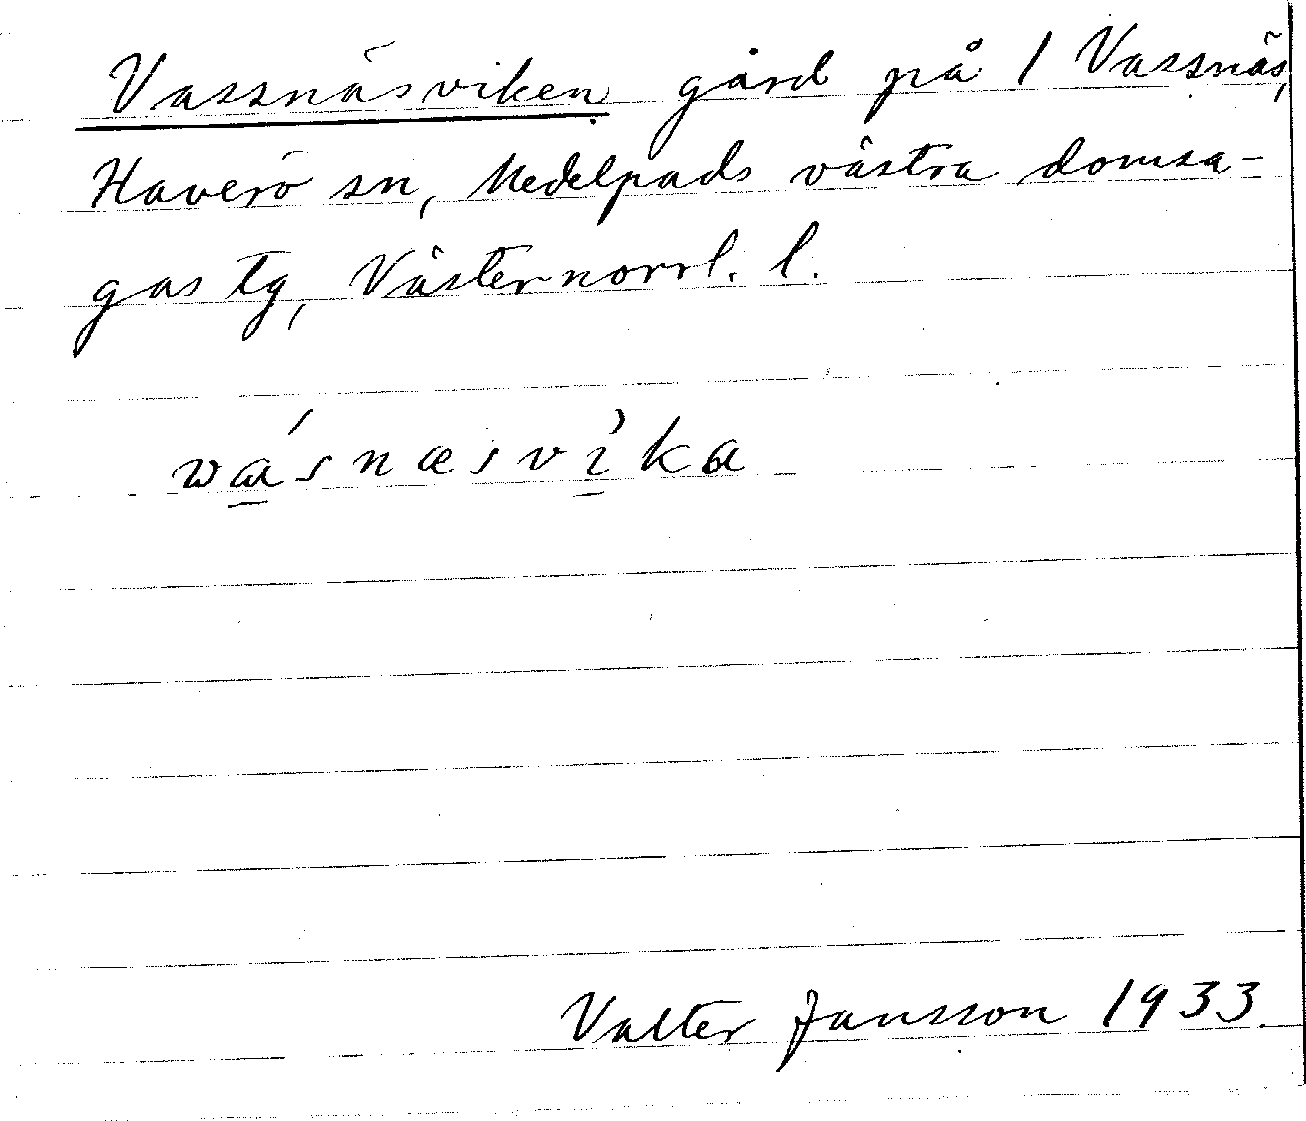 Vassnäsviken gård på 1 Vassnäs,
Haverö sn, Medelpads västra domsa-
gas tg, Västernorrl. l.
wá̲snæsvì̲ka
Valter Jansson 1933.